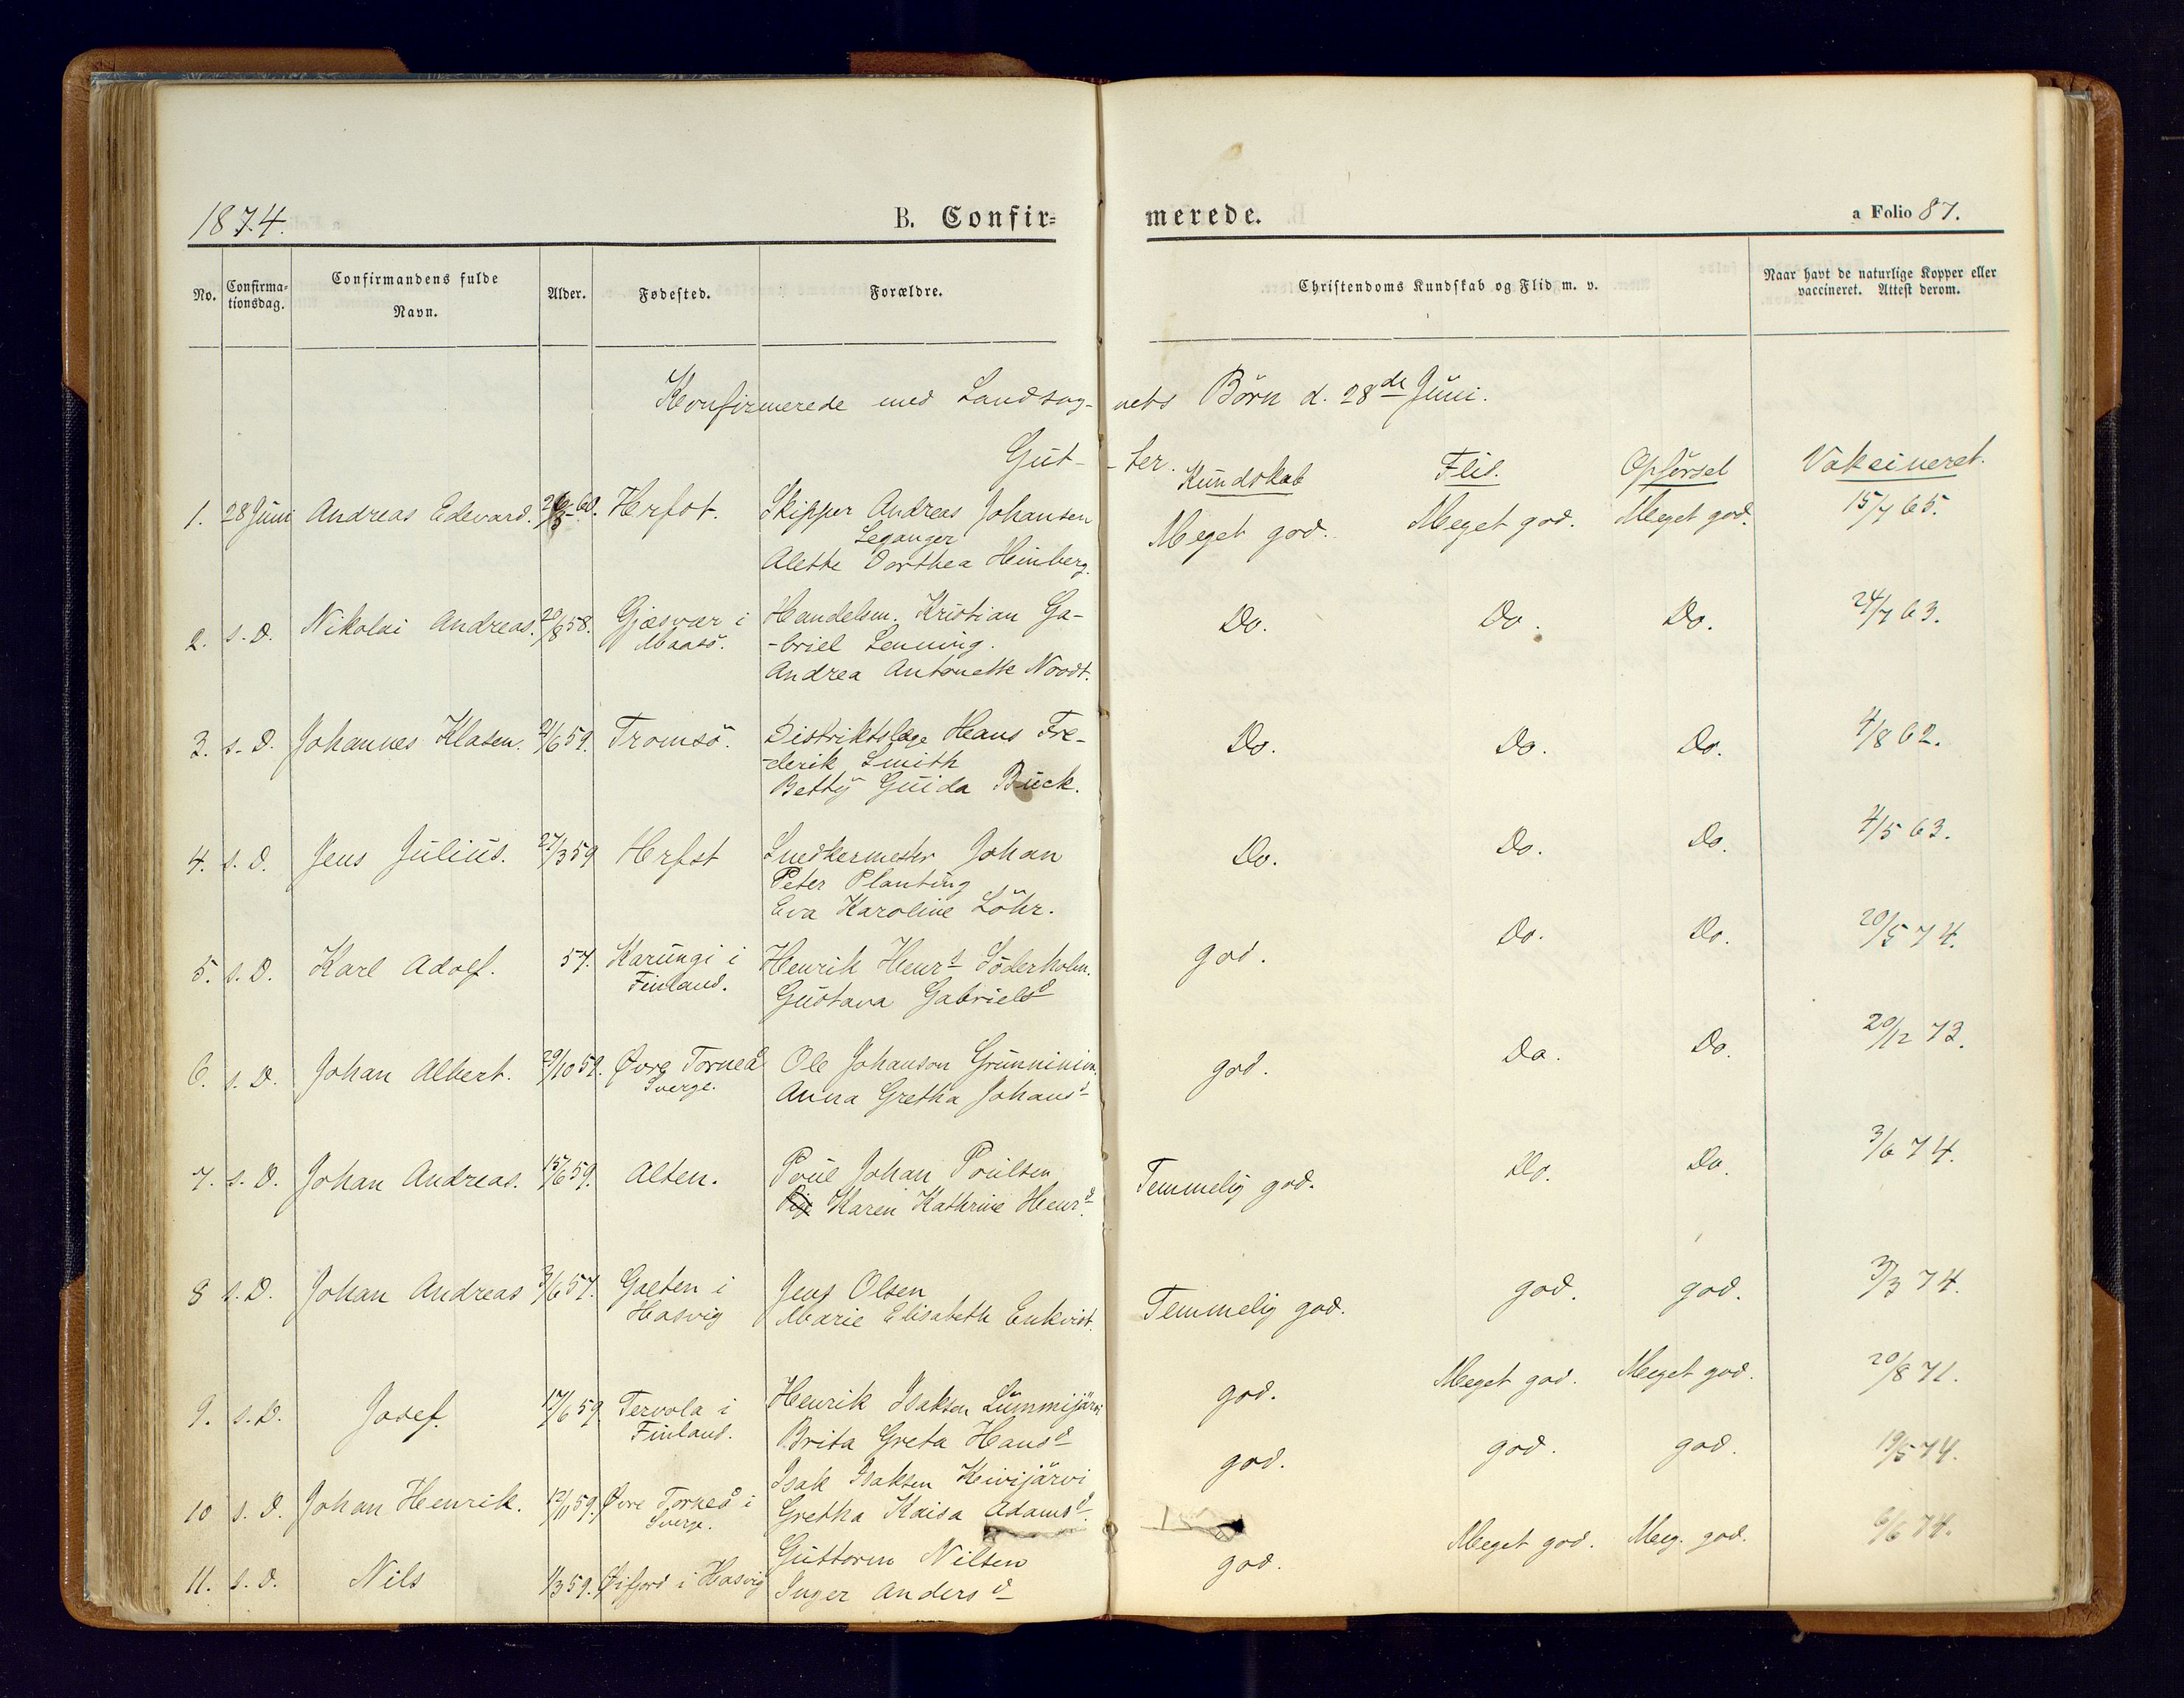 1874.
B. Confir=
merede.
a Folio 87.
No.
Confirma-
tionsdag.
Confirmandens fulde
Navn.
Alder.
Fødested.
Forældre.
Christendoms Kundskab og Flid m. v.
Naar havt de naturlige Kopper eller
vaccineret. Attest derom.
Konfirmerede med Landsog- nets Börn d. 28de Juni.
Gut- -ter.
Kundskab Flid. Opförsel Vakcineret.
1. 28 Juni Andreas Edevard. 60. Herfst. Skipper Andreas Johansen Meget god. Meget god. Meget god. 15/7 65.
Leganger
Alette Dorthea Heinberg.
2. s. D. Nikolai Andreas. 20/8 58. Gjæsvær i Handelsm. Kristian Ga- Do. Do. Do. 24/7 63.
Maasö. -briel Lenning.
Andrea Antonette Noodt.
3. s. D. Johannes Klasen. 21/6 59. Tromsö. Distriktslæge Hans Fre- Do. Do. Do. 4/8 62.
-derik Smith
Betty Guida Buck.
4. s. D. Jens Julius. 27/3 59 Herfst Snedkermester Johan Do. Do. Do. 4/5 63.
Peter Planting
Eva Karoline Löhr.
5. s. D. Karl Adolf. 57. Karungi i Henrik Henrs Söderholm. god. Do. Do. 20/5 74.
Finland. Gustava Gabrielsd
6. s. D. Johan Albert. 29/10 59. Øvre Torneå Ole Johanson Grunninien. god. Do. Do. 20/12 73.
Sverge. Anna Gretha Johansd
7. s. D. Johan Andreas. 15/6 59. Alten. Poul Johan Poulsen Temmelig god. Do. Do. 3/6 74.
Karen Kathrine Henrd.
8 s. D. Johan Andreas 3/6 57. Gaeten i Jens Olsen Temmelig god. god. god. 3/3 74.
Hasvig Marie Elisabeth Enkvist.
9. s. D. Josef. 17/6 59 Tervola i Henrik Isaksen Lummijärvi god. Meget god. Meget god. 20/8 71.
Finland. Brita Greta Hansd
10 s. D. Johan Henrik. 12/11 59. Øvre Torneå i Isak Isaksen Keivijärvi god. god. god. 19/5 74.
Sverge. Gretha Kaisa Adamsd.
11. s. D. Nils 1/3 59. Øifjord i Hasvig Guttorm Nilsen god. Meget god. Meg. god. 6/6 74.
Inger Andersd